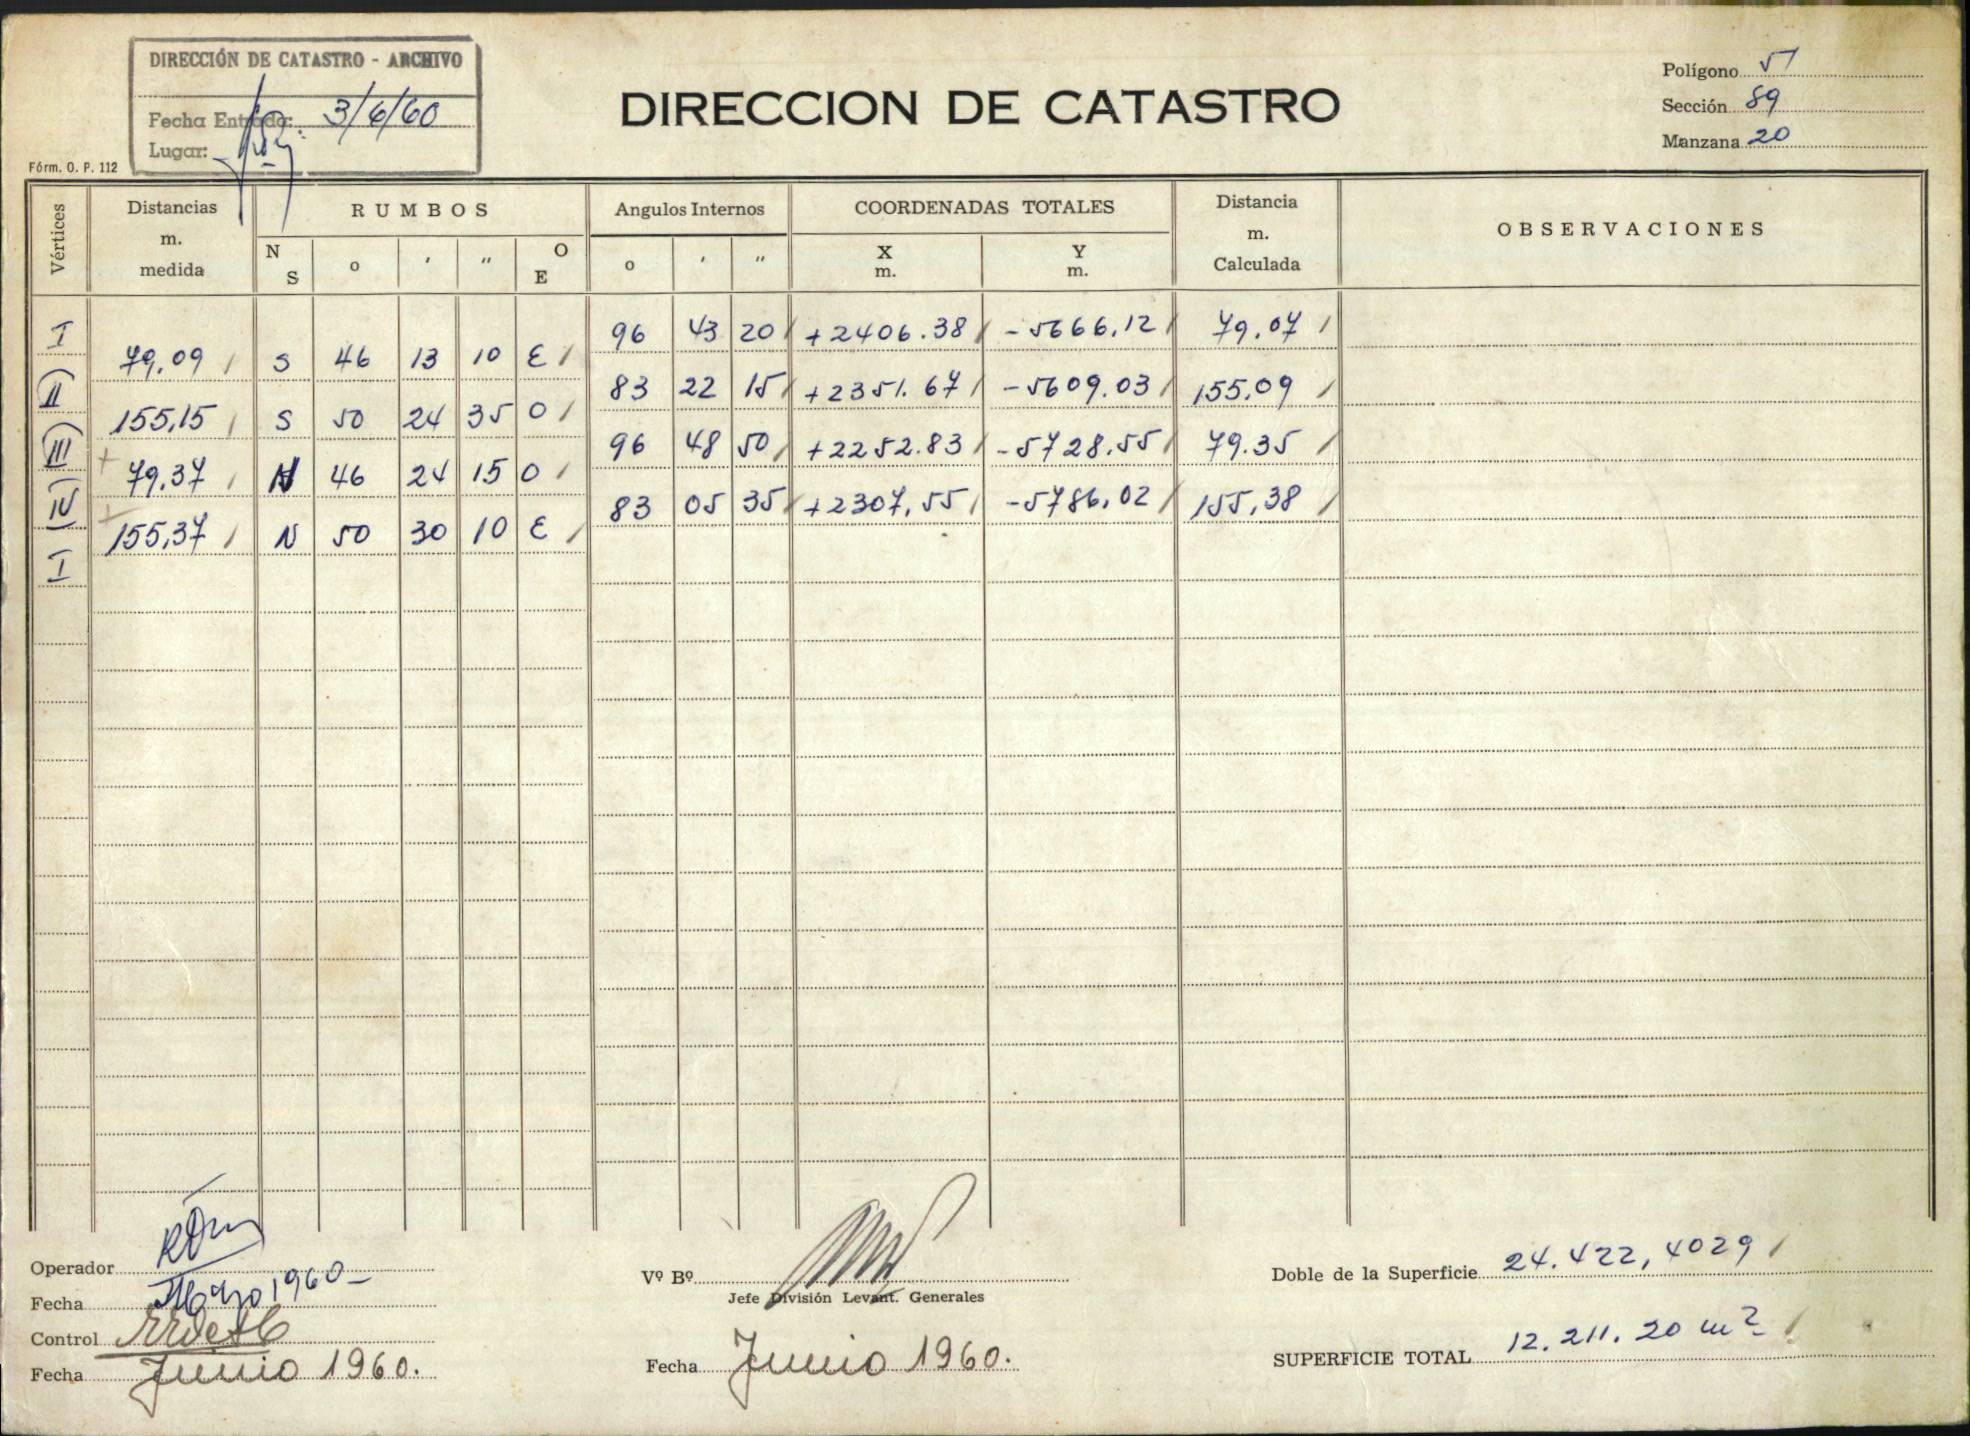 DIRECCIÓN DE CATASTRO - ARCHIVO
Fecha Entrada: 3/6/60
Lugar:
Fórm. O. P. 112
DIRECCION DE CATASTRO
Polígono 51
Sección 89
Manzana 20
Vértices Distancias m. medida RUMBOS Angulos Internos COORDENADAS TOTALES Distancia m. Calculada OBSERVACIONES
N S o ' " O E o ' " X m. Y m.
I 96 43 20 +2406.38 -5666,12 79.07
79,09 S 46 13 10 E
II 83 22 15 +2351.67 -5609.03 155,09
155,15 S 50 24 35 O
III 96 48 50 +2252.83 -5728,55 79.35
79,37 N 46 24 15 O
IV 83 05 35 +2307,55 -5786,02 155,38
155,37 N 50 30 10 E
I
Operador
Fecha Marzo 1960-
Control
Fecha Junio 1960.
Vº Bº
Jefe División Levant. Generales
Fecha Junio 1960.
Doble de la Superficie 24.422,4029
SUPERFICIE TOTAL 12.211.20 m²